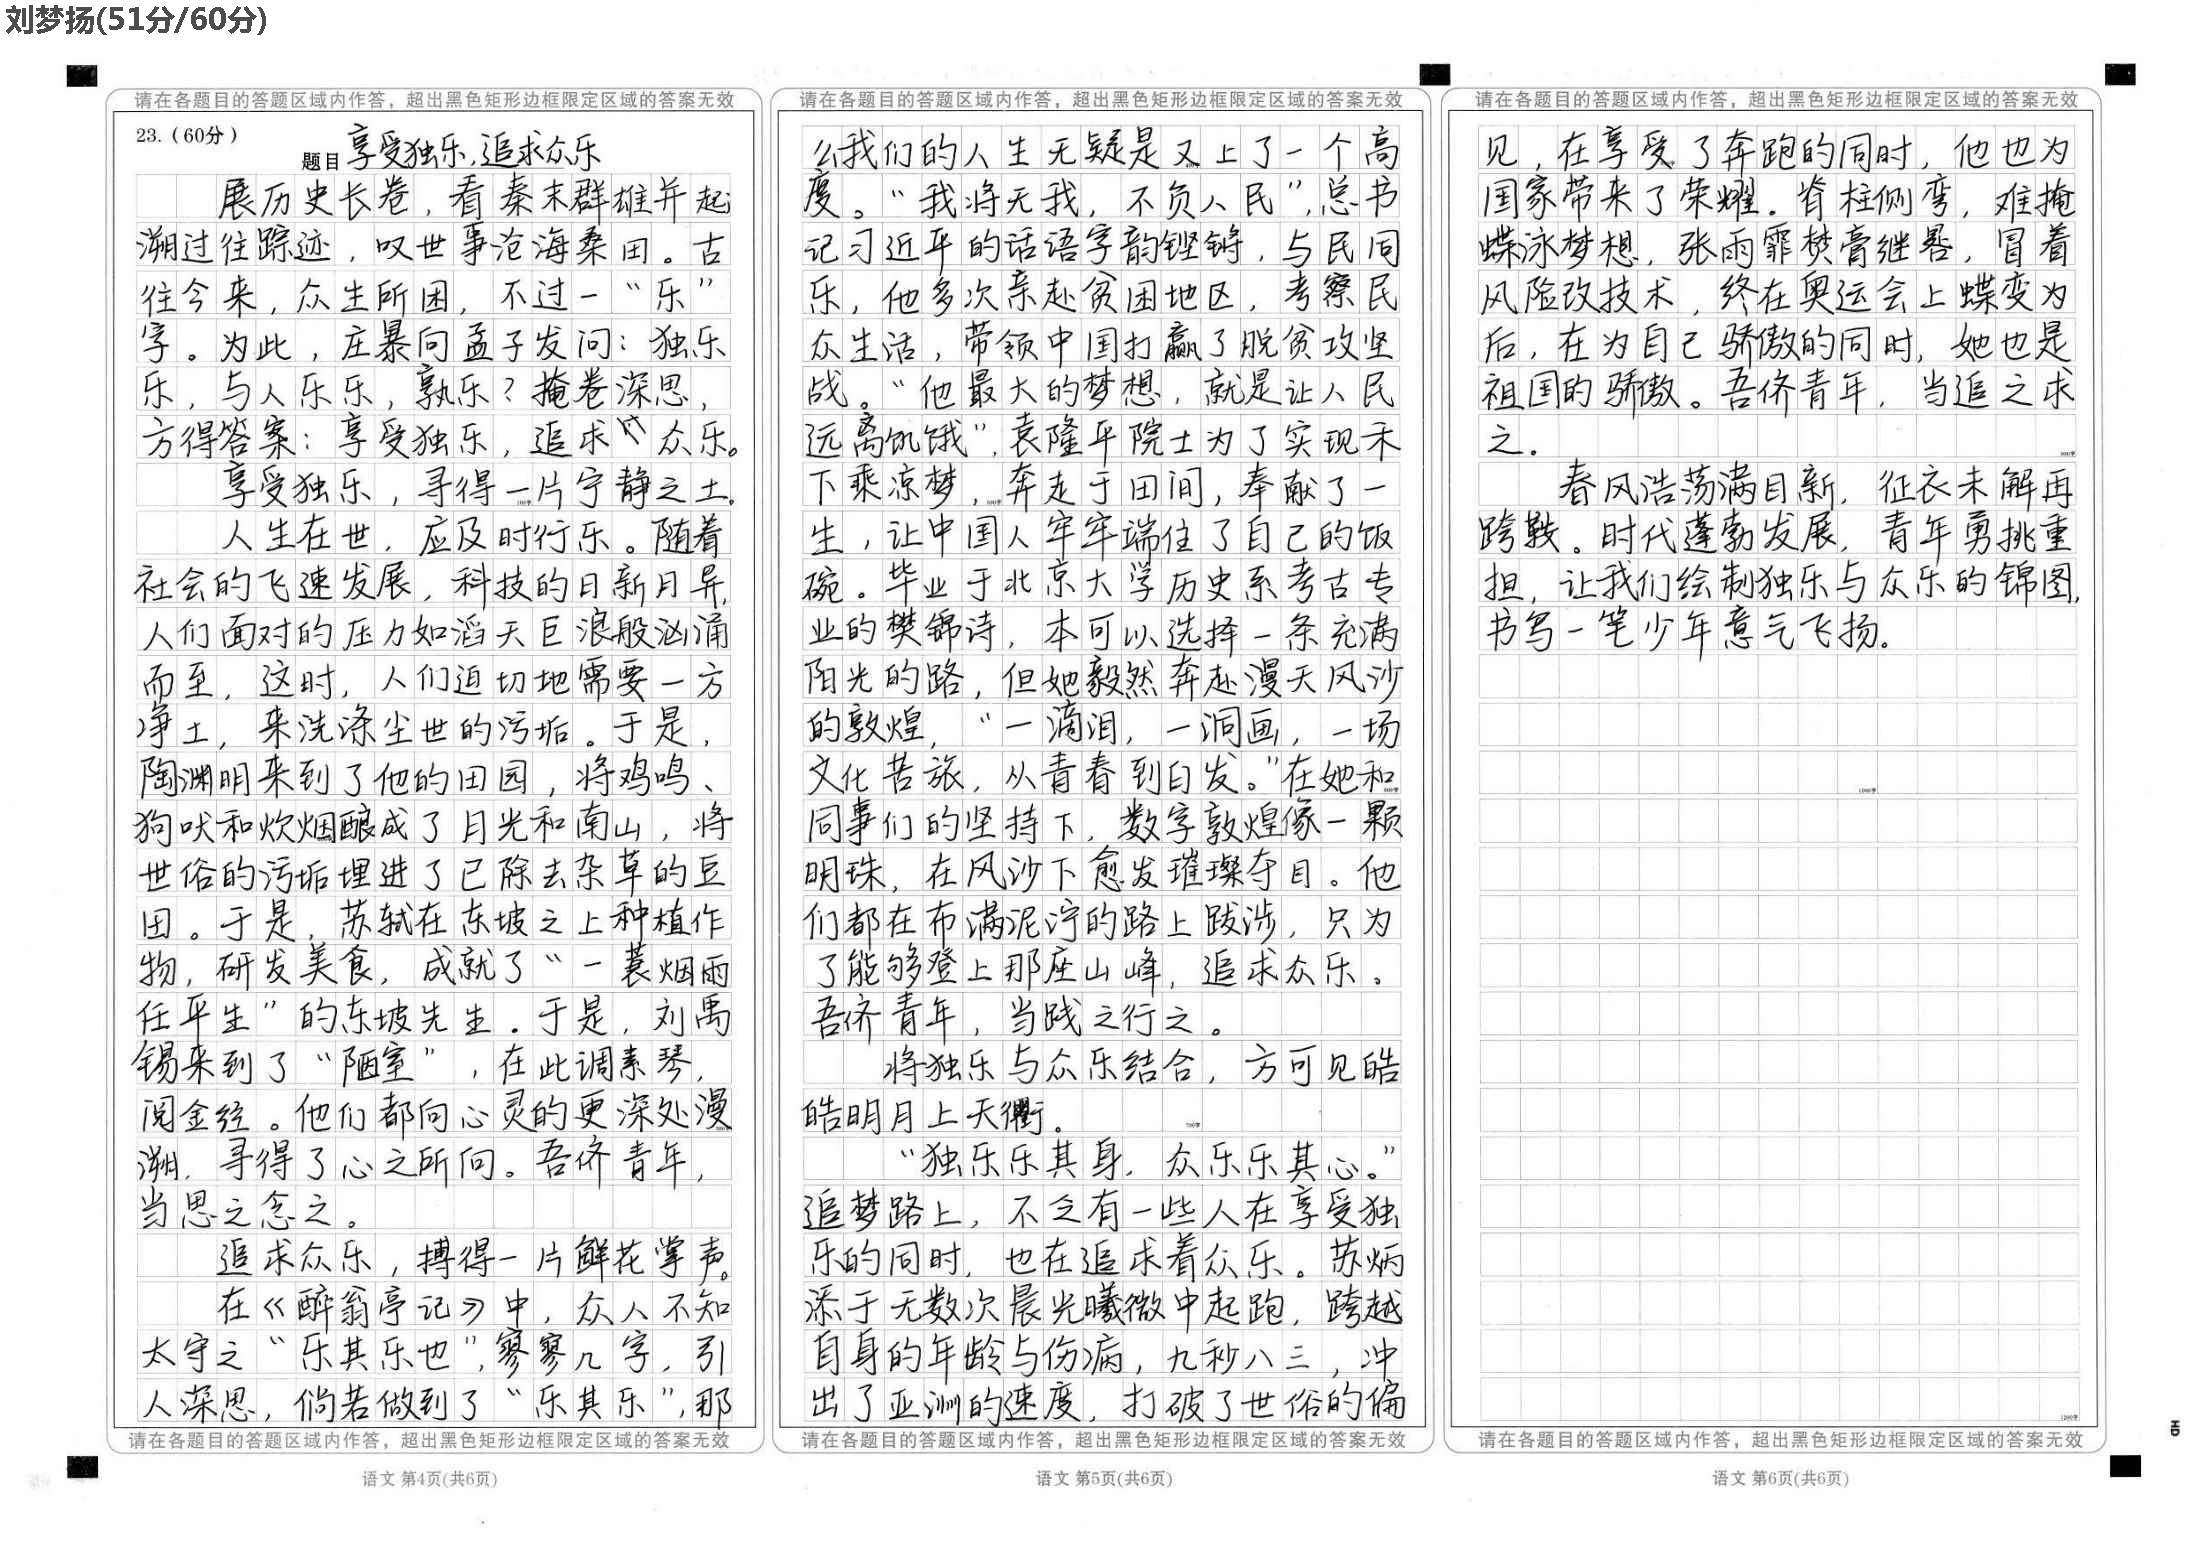 刘梦扬(51分/60分)
请在各题目的答题区域内作答，超出黑色矩形边框限定区域的答案无效
23.（60分）
题目 享受独乐,追求众乐
展历史长卷，看秦末群雄并起
溯过往踪迹，叹世事沧海桑田。古
往今来，众生所困，不过一“乐”
字。为此，庄暴向孟子发问：独乐
乐，与人乐乐，孰乐？掩卷深思，
方得答案：享受独乐，追求众乐。
享受独乐，寻得一片宁静之土。
人生在世，应及时行乐。随着
社会的飞速发展，科技的日新月异，
人们面对的压力如滔天巨浪般汹涌
而至，这时，人们迫切地需要一方
净土，来洗涤尘世的污垢。于是，
陶渊明来到了他的田园，将鸡鸣、
狗吠和炊烟酿成了月光和南山，将
世俗的污垢埋进了已除去杂草的豆
田。于是，苏轼在东坡之上种植作
物，研发美食，成就了“一蓑烟雨
任平生”的东坡先生。于是，刘禹
锡来到了“陋室”，在此调素琴，
阅金经。他们都向心灵的更深处漫
溯，寻得了心之所向。吾侪青年，
当思之念之。
追求众乐，搏得一片鲜花掌声。
在《醉翁亭记》中，众人不知
太守之“乐其乐也”，寥寥几字，引
人深思，倘若做到了“乐其乐”，那
请在各题目的答题区域内作答，超出黑色矩形边框限定区域的答案无效
语文 第4页(共6页)
请在各题目的答题区域内作答，超出黑色矩形边框限定区域的答案无效
么我们的人生无疑是又上了一个高
度。“我将无我，不负人民”，总书
记习近平的话语字韵铿锵，与民同
乐，他多次亲赴贫困地区，考察民
众生活，带领中国打赢了脱贫攻坚
战。“他最大的梦想，就是让人民
远离饥饿”，袁隆平院士为了实现禾
下乘凉梦，奔走于田间，奉献了一
生，让中国人牢牢端住了自己的饭
碗。毕业于北京大学历史系考古专
业的樊锦诗，本可以选择一条充满
阳光的路，但她毅然奔赴漫天风沙
的敦煌，“一滴泪，一洞画，一场
文化苦旅，从青春到白发。”在她和
同事们的坚持下，数字敦煌像一颗
明珠，在风沙下愈发璀璨夺目。他
们都在布满泥泞的路上跋涉，只为
了能够登上那座山峰，追求众乐。
吾侪青年，当践之行之。
将独乐与众乐结合，方可见皓
皓明月上天衢。
“独乐乐其身，众乐乐其心。”
追梦路上，不乏有一些人在享受独
乐的同时，也在追求着众乐。苏炳
添于无数次晨光曦微中起跑，跨越
自身的年龄与伤病，九秒八三，冲
出了亚洲的速度，打破了世俗的偏
请在各题目的答题区域内作答，超出黑色矩形边框限定区域的答案无效
语文 第5页(共6页)
请在各题目的答题区域内作答，超出黑色矩形边框限定区域的答案无效
见，在享受了奔跑的同时，他也为
国家带来了荣耀。脊柱侧弯，难掩
蝶泳梦想，张雨霏焚膏继晷，冒着
风险改技术，终在奥运会上蝶变为
后，在为自己骄傲的同时，她也是
祖国的骄傲。吾侪青年，当追之求
之。
春风浩荡满目新，征衣未解再
跨鞍。时代蓬勃发展，青年勇挑重
担，让我们绘制独乐与众乐的锦图，
书写一笔少年意气飞扬。
请在各题目的答题区域内作答，超出黑色矩形边框限定区域的答案无效
语文 第6页(共6页)